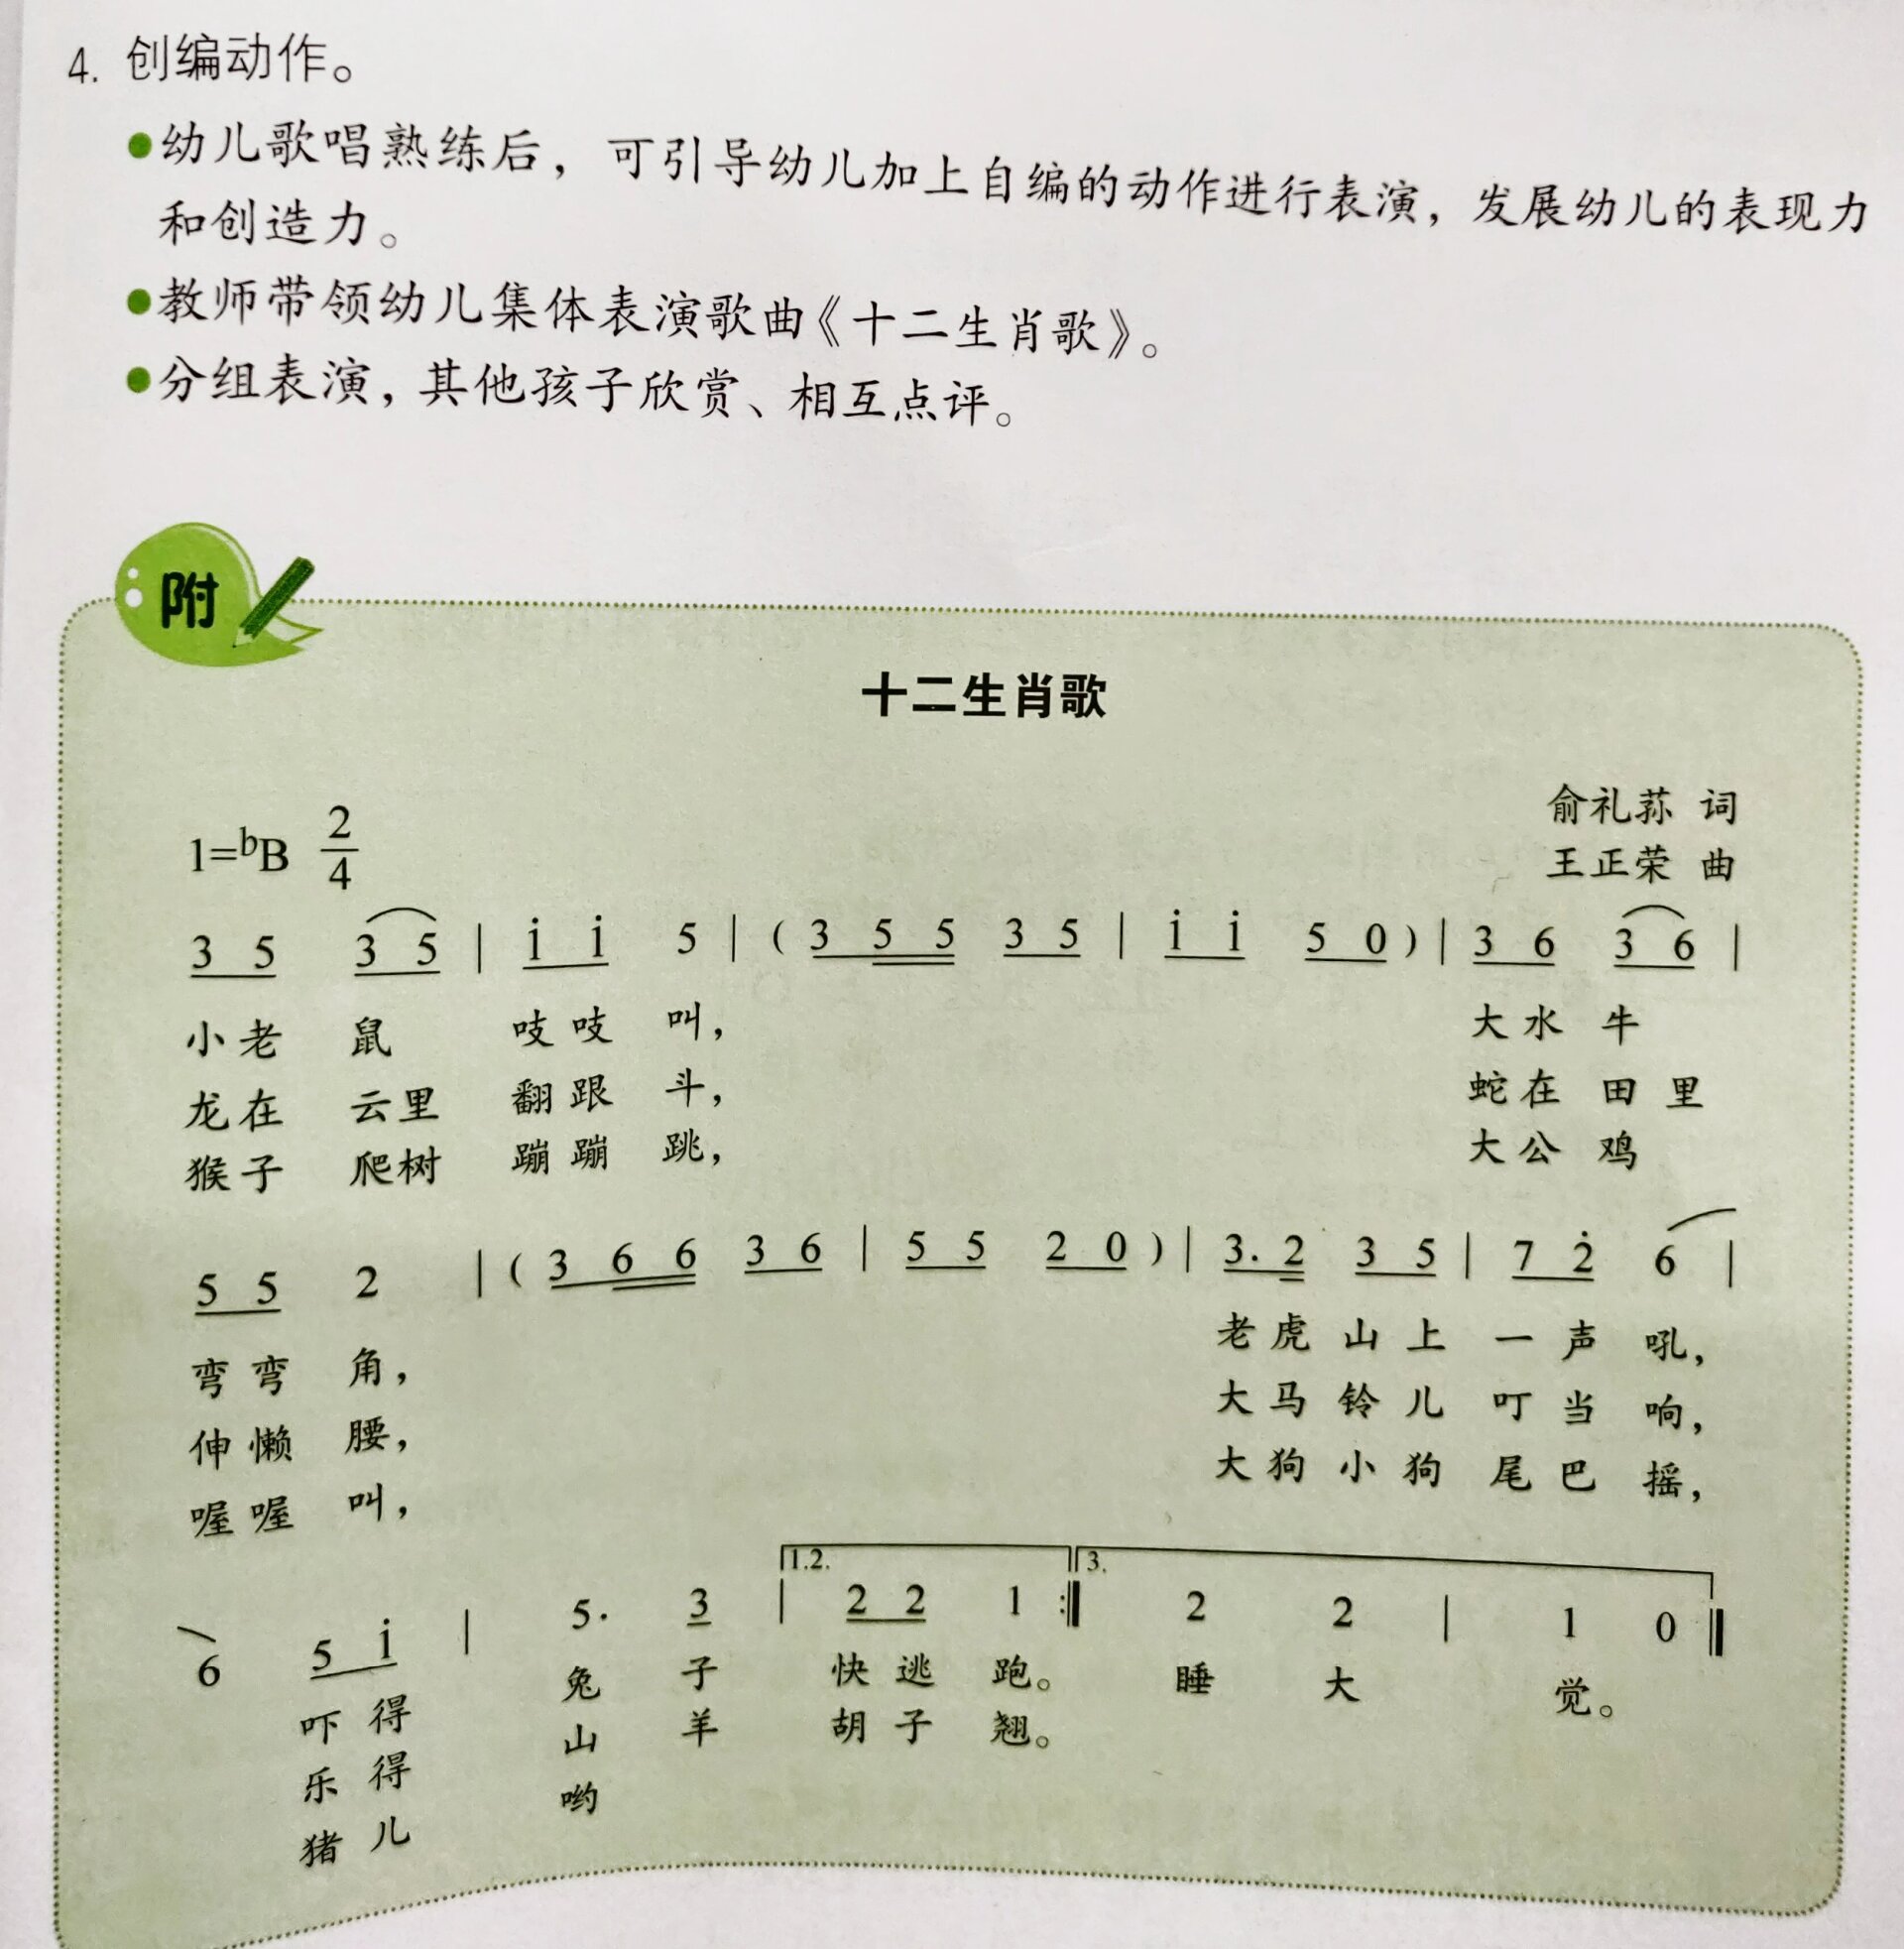 4. 创编动作。
●幼儿歌唱熟练后，可引导幼儿加上自编的动作进行表演，发展幼儿的表现力
和创造力。
●教师带领幼儿集体表演歌曲《十二生肖歌》。
●分组表演，其他孩子欣赏、相互点评。
附
十二生肖歌
俞礼荪 词
1=ᵇB 2/4
王正荣 曲
3 5 3 5 | i̇ i̇ 5 | ( 3 5 5 3 5 | i̇ i̇ 5 0 ) | 3 6 3 6 |
小老 鼠 吱吱 叫， 大水 牛
龙在 云里 翻跟 斗， 蛇在 田里
猴子 爬树 蹦蹦 跳， 大公 鸡
5 5 2 | ( 3 6 6 3 6 | 5 5 2 0 ) | 3. 2 3 5 | 7 2̇ 6 |
弯弯 角， 老虎 山上 一声 吼，
伸懒 腰， 大马 铃儿 叮当 响，
喔喔 叫， 大狗 小狗 尾巴 摇，
1.2. 3.
6 5 i̇ | 5. 3 | 2 2 1 :‖ 2 2 | 1 0 ‖
吓得 兔 子 快逃 跑。 睡 大 觉。
乐得 山 羊 胡子 翘。
猪儿 哟